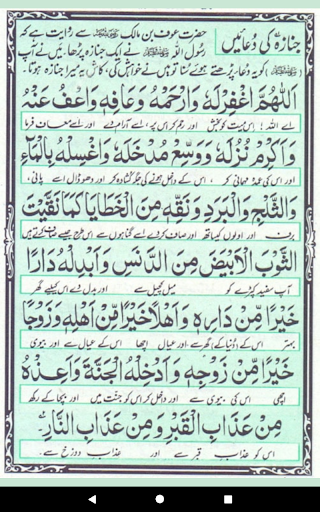 جنازہ کی دُعائیں
حضرت عوف بن مالک ﷺ سے روایت ہے کہ
رسول اللہ ﷺ نے ایک جنازہ پڑھا۔ میں نے آپ
کو یہ دُعا پڑھتے ہوئے سُنا تو میں نے خواہش کی، کاش یہ میرا جنازہ ہوتا۔
اَللّٰهُمَّ اغْفِرْلَهٗ وَارْحَمْهُ وَعَافِهٖ وَاعْفُ عَنْهُ
اے اللہ! اس میت کو بخش اور رحم کر اس پر، اسے آرام دے اور اسے معاف فرما
وَاَكْرِمْ نُزُلَهٗ وَوَسِّعْ مُدْخَلَهٗ وَاغْسِلْهُ بِالْمَآءِ
اور اس کی عمدہ مہمانی کر، اس کے داخل ہونے کی جگہ کشادہ کر اور دھو ڈال اسے پانی،
وَالثَّلْجِ وَالْبَرَدِ وَنَقِّهٖ مِنَ الْخَطَايَا كَمَا نَقَّيْتَ
برف اور اولوں کیساتھ اور صاف کردے اسے گناہوں سے اس طرح جیسے صاف کرتے ہیں
الثَّوْبَ الْاَبْيَضَ مِنَ الدَّنَسِ وَاَبْدِلْهُ دَارًا
آپ سفید کپڑے کو میل کچیل سے اور بدل دے اس کیلئے گھر
خَيْرًا مِّنْ دَارِهٖ وَاَهْلًا خَيْرًا مِّنْ اَهْلِهٖ وَزَوْجًا
بہتر اس کے دُنیا کے گھر سے اور عیال اچھا اس کے عیال سے اور بیوی
خَيْرًا مِّنْ زَوْجِهٖ وَاَدْخِلْهُ الْجَنَّةَ وَاَعِذْهُ
اچھی اس کی بیوی سے اور داخل کر اس کو جنت میں اور بچا کے رکھ
مِنْ عَذَابِ الْقَبْرِ وَمِنْ عَذَابِ النَّارِ
اس کو عذاب قبر سے اور عذاب دوزخ سے۔